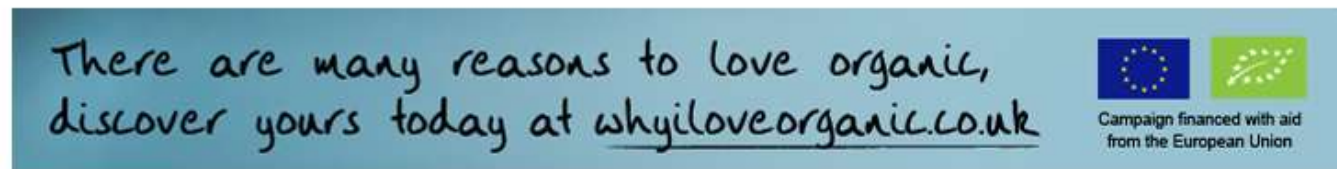 There are many reasons to love organic,
discover yours today at whyiloveorganic.co.uk
Campaign financed with aid
from the European Union